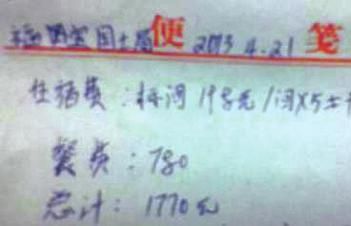 国土局便 2013.4.21 笺
住宿费:标间198元/间X5=
餐费:780
总计:1770元